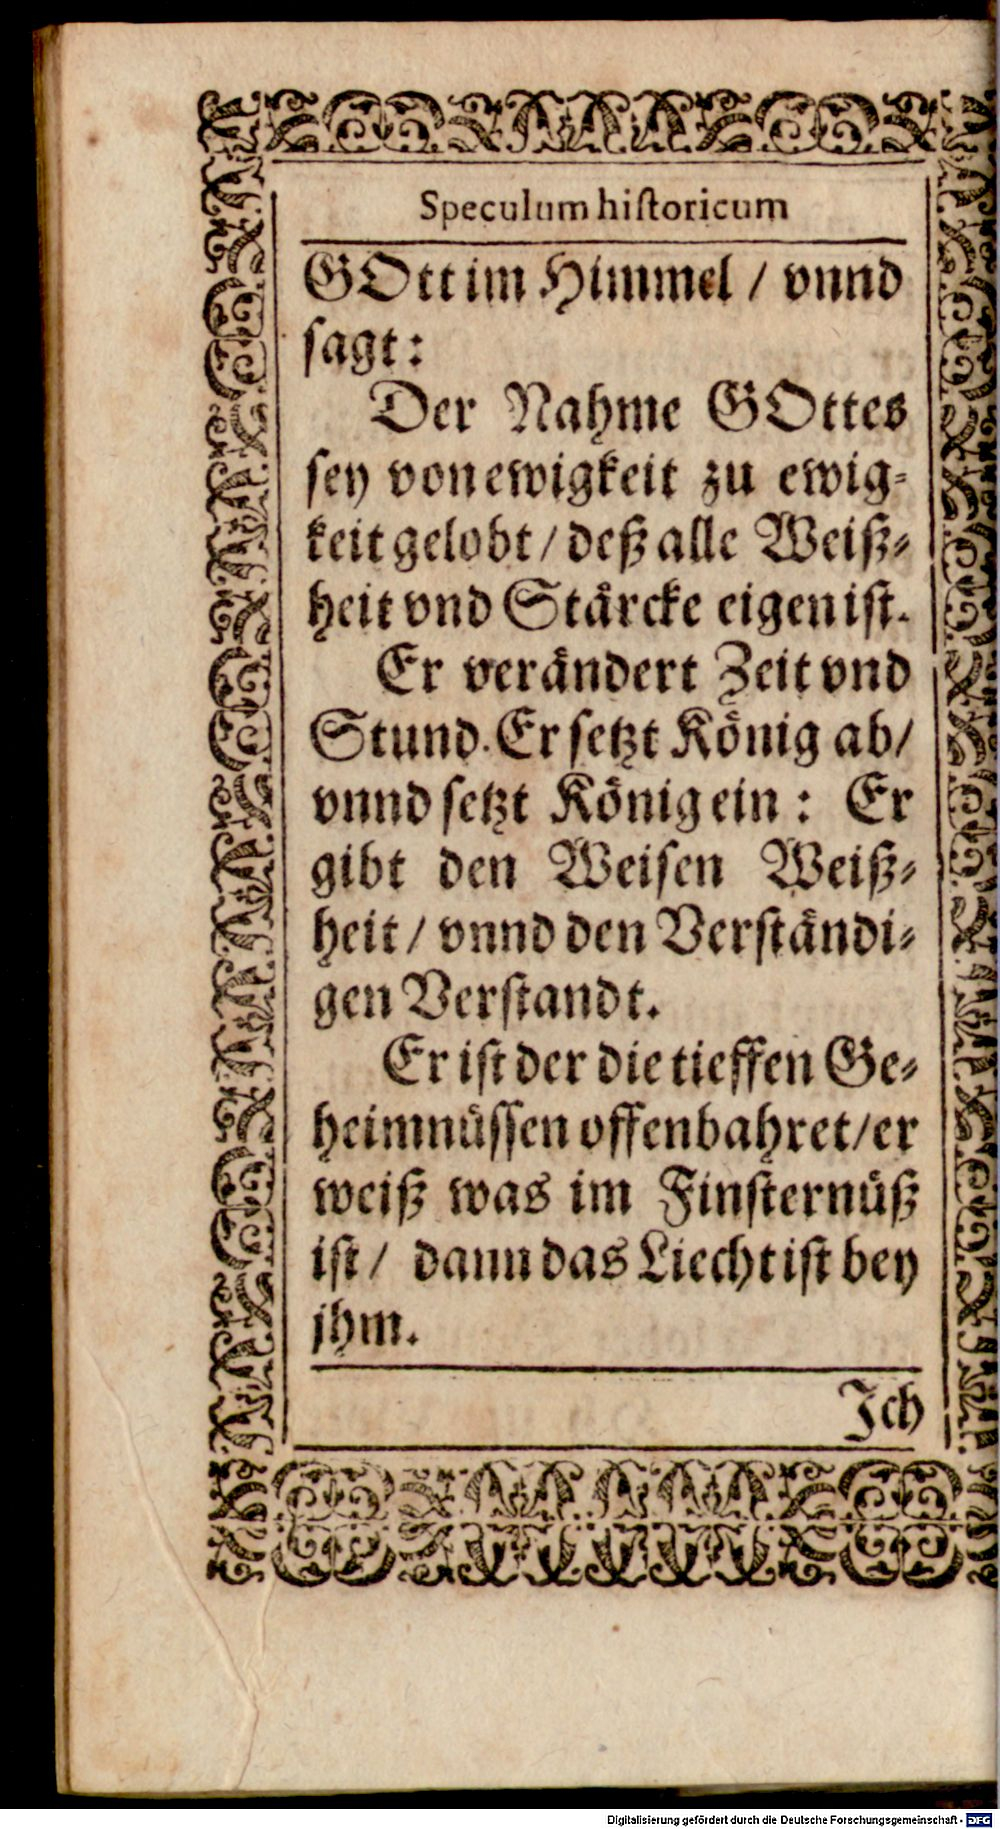 Speculum hiſtoricum
GOtt im Himmel / vnnd
ſagt:
Der Nahme GOttes
ſey von ewigkeit zu ewig-
keit gelobt / deß alle Weiß-
heit vnd Stärcke eigen iſt.
Er verändert Zeit vnd
Stund. Er ſetzt König ab /
vnnd ſetzt König ein : Er
gibt den Weiſen Weiß-
heit / vnnd den Verſtändi-
gen Verſtandt.
Er iſt der die tieffen Ge-
heimnüſſen offenbahret / er
weiß was im Finſternüß
iſt / dann das Liecht iſt bey
jhm.
Ich
Digitalisierung gefördert durch die Deutsche Forschungsgemeinschaft - DFG